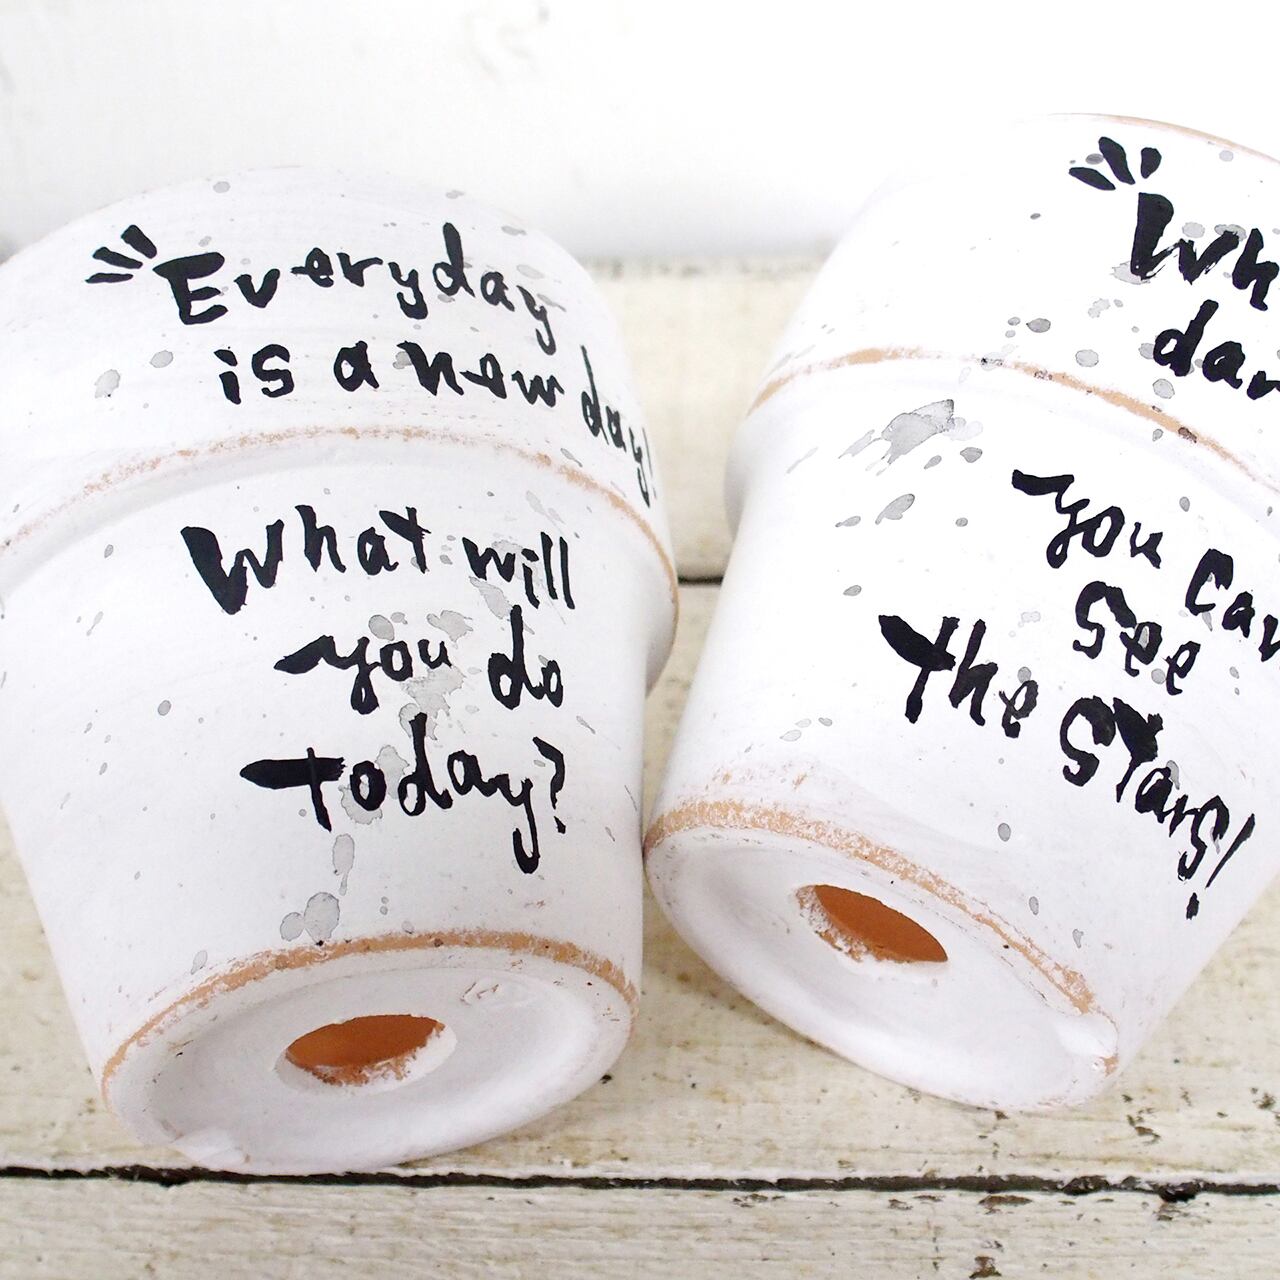 "Everyday
is a new day!
What will
you do
today?
"Wh
dar
you can
see
the Stars!